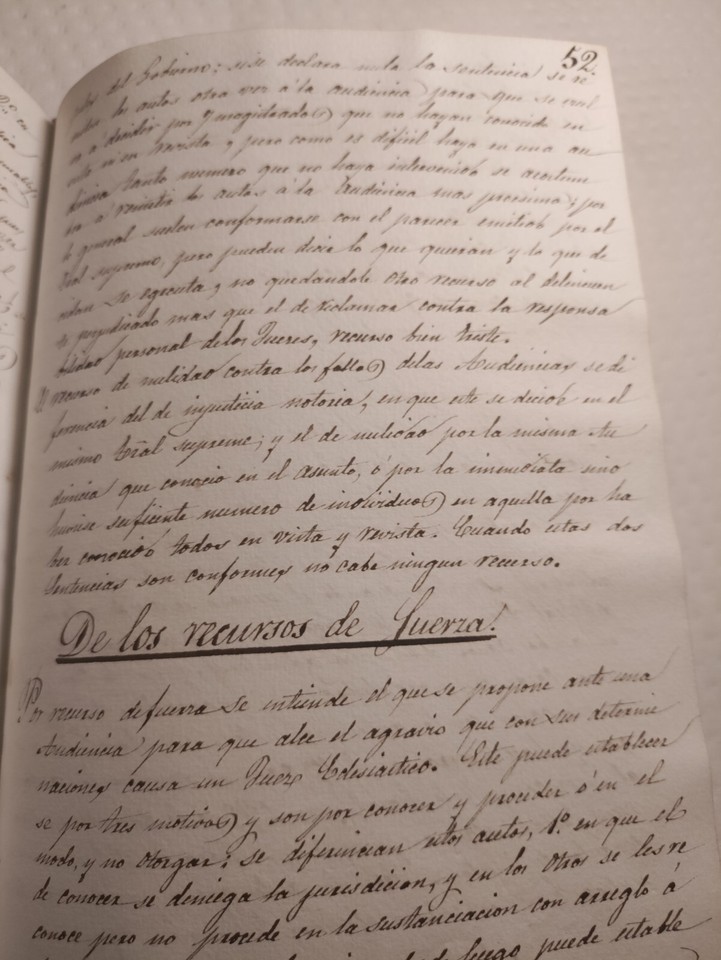 52.
del Gobierno; si se declara nula la sentencia se re
los autos otra vez á la audiencia para que se vuel
va á decidir por 7 magistrados que no hayan conocido en
ni en Revista y pero como es dificil haya en una au
diencia tanto numero que no haya intervenido se acostum
bra á remitir los autos á la Audiencia mas procsima; por
lo general suelen conformarse con el parecer emitido por el
Tral supremo, pero pueden decir lo que quieran y lo que de
cidan se egecuta y no quedandole otro recurso al delincuen
te perjudicado mas que el de reclamar contra la responsa
bilidad personal de los Jueces, recurso bien triste.
El recurso de nulidad contra los fallos de las Audiencias se di
ferencia del de injusticia notoria, en que este se decide en el
mismo tral supremo; y el de nulidad por la misma Au
diencia que conocio en el asunto, ó por la inmediata sino
hubiese suficiente numero de individuos en aquella por ha
ber conocido todos en vista y revista. Cuando estas dos
Sentencias son conformes no cabe ningun recurso.
De los recursos de Fuerza.
Por recurso de fuerza se entiende el que se propone ante una
Audiencia para que alce el agravio que con sus determi
naciones causa un Juez Eclesiastico. Este puede establecer
se por tres motivos y son por conocer y proceder ó en el
modo, y no otorgar: se diferencian estos autos, 1º en que el
de conocer se deniega la jurisdicion, y en los otros se les re
conoce pero no procede en la sustanciacion con arreglo á
luego puede estable